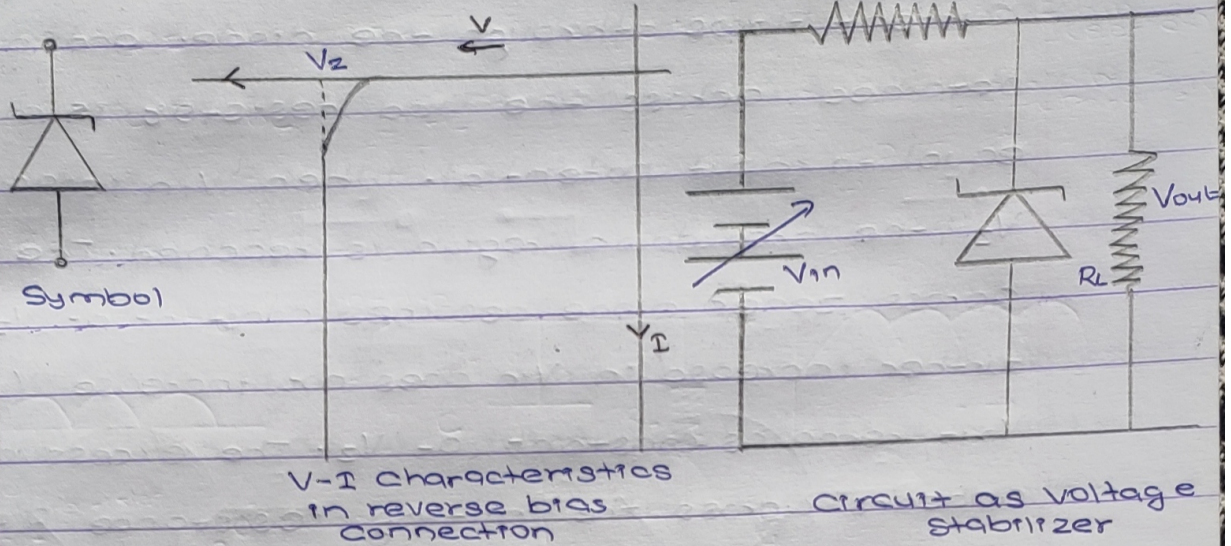 V
Vz
Symbol
I
V-I Characteristics
in reverse bias
connection
Vin
RL
Vout
Circuit as voltage
stabilizer